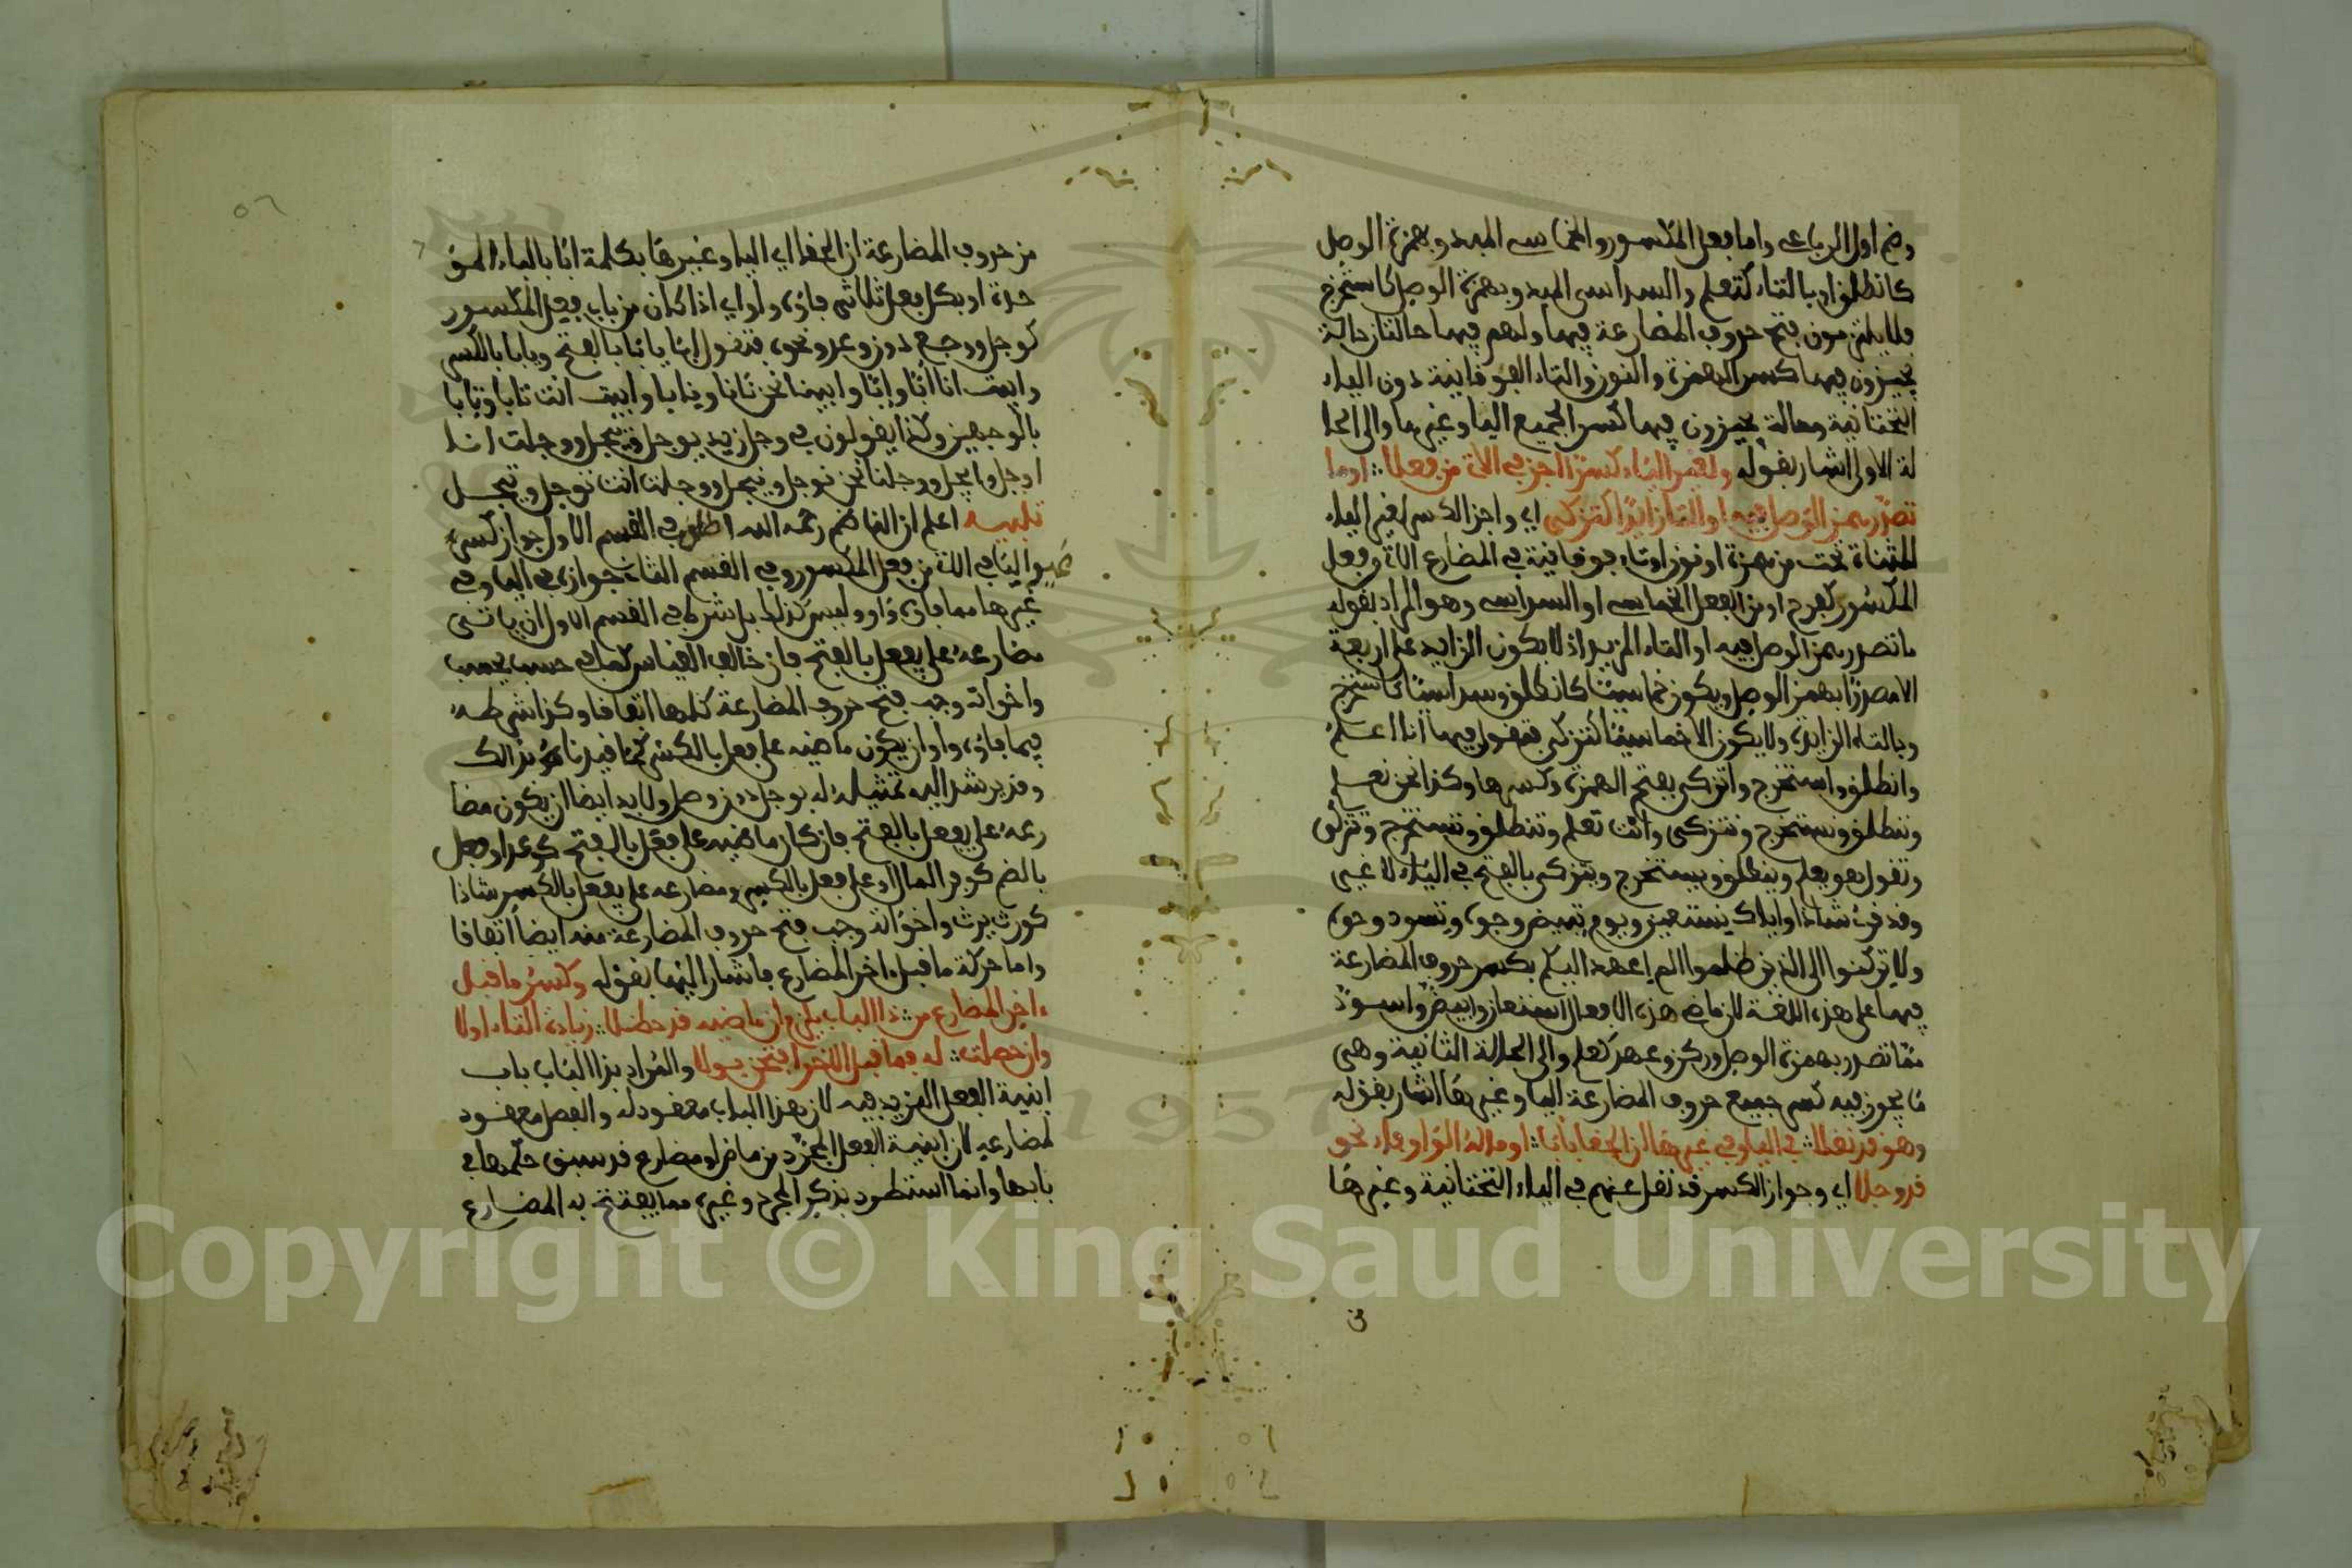 وضم اول الرباعى واما فعل المكسور والخماسى المبدو بهمزة الوصل
كانطلق او بالتاء كتعلم والسداسى المبدو بهمزة الوصل كاستخرج
فلا يلتزمون فتح حروف المضارعة فيهما ولهم فيهما حالتان حالة
يجيزون فيها كسر الهمزة والنون والتاء الفوقانية دون الياء
التحتانية وحالة يجيزون فيها كسر الجميع الياء وغيرها والى الحا
لة الاولى اشار بقوله ولغير الياء كسرا اجز فى الات من فعلا او ما
تصدر همز الوصل فيه او التا زايدا كتزكى اي واجز الكسر لغير الياء
المثناة تحت من همزة او نون او تاء فوقانية في المضارع الات من فعل
المكسور كفرح او من الفعل الخماسى او السداسى وهو المراد بقوله
ما تصدر همز الوصل فيه او التاء المزيد اذ لا يكون الزايد على اربعة
الا مصدرا بهمز الوصل ويكون خماسيا كانطلق وسداسيا كاستخرج
وبالتاء الزايدة ولا يكون الا خماسيا كتزكى فتقول فيها انا اعلم
وانطلق واستخرج واتزكى بفتح الهمزة وكسرها وكذا نحن نعلم
وننطلق ونستخرج ونتزكى وانت تعلم وتنطلق وتستخرج وتتزكى
وتقول هو يعلم وينطلق ويستخرج ويتزكى بالفتح في الياء لا غير
وقد قرئ شاذا واياك نستعين ويوم تبيض وجوه وتسود وجوه
ولا تركنوا الى الذين ظلموا الم اعهد اليكم بكسر حروف المضارعة
فيها على هذه اللغة لان ماضى هذه الافعال استعان وابيض واسود
مما تصدر بهمزة الوصل وركن وعهد كعلم والى الحالة الثانية وهى
ما يجوز فيه كسر جميع حروف المضارعة الياء وغيرها اشار بقوله
وهو قد نقلا في الياء وفي غيرها ان الحقا بابا او ماله الواو فاء نحو
قد وجلا اي وجواز الكسر قد نقل عنهم في الياء التحتانية وغيرها
من حروف المضارعة ان الحقا اي الياء وغيرها بكلمة ابا بالباء الموَ
حدة او بكل فعل ثلاثى فاؤه واو اي اذا كان من باب فعل المكسور
كوجل ووجع دون وعد ونحوه فتقول ابا يابا بالفتح ويابا بالكسر
وابيت انا أبا وإبا وابينا نحن نابا ونابا وابيت انت تابا وتابا
بالوجهين وكذا يقولون في وجل زيد يوجل وييجل ووجلت انا
اوجل وايجل ووجلنا نحن نوجل ونيجل ووجلت انت توجل وتيجل
تنبيه اعلم ان الناظم رحمه الله اطلق في القسم الاول جواز كسر
غير اليا في الات من فعل المكسور وفي القسم الثانى جوازه في الياء وفي
غيرها مما فاؤه واو وليس كذلك بل شرط في القسم الاول ان ياتى
مضارعه على يفعل بالفتح فان خالف القياس كما في حسب يحسب
واخواته وجب فتح حروف المضارعة كلها اتفاقا وكذا شرطه
فيما فاؤه واو ان يكون ماضيه على فعل بالكسر كما قيدناه بذالك
وقد يرشد اليه تمثيله له بوجل دون وصل ولا بد ايضا ان يكون مضا
رعه على يفعل بالفتح فان كان ماضيه على فعل بالفتح كوعد او فعل
بالضم كوفر المال او على فعل بالكسر ومضارعه على يفعل بالكسر شاذا
كورث يرث واخواته وجب فتح حروف المضارعة منه ايضا اتفاقا
واما حركة ما قبل اخر المضارع فاشار اليها بقوله وكسر ما قبل
ءاخر المضارع من ذا الباب يلزم ان ماضيه قد حظلا زيادة التاء اولا
وان حصلت له فما قبل الاخر افتحن بولا والمراد بذا الباب باب
ابنية الفعل المزيد فيه لان هذا الباب معقود له والفصل معقود
لمضارعه لان ابنية الفعل المجرد من ماض او مضارع قد سبق حكمها في
بابها وانما استطرد بذكر المجرد وغيره مما يفتتح به المضارع
Copyright © King Saud University
1957